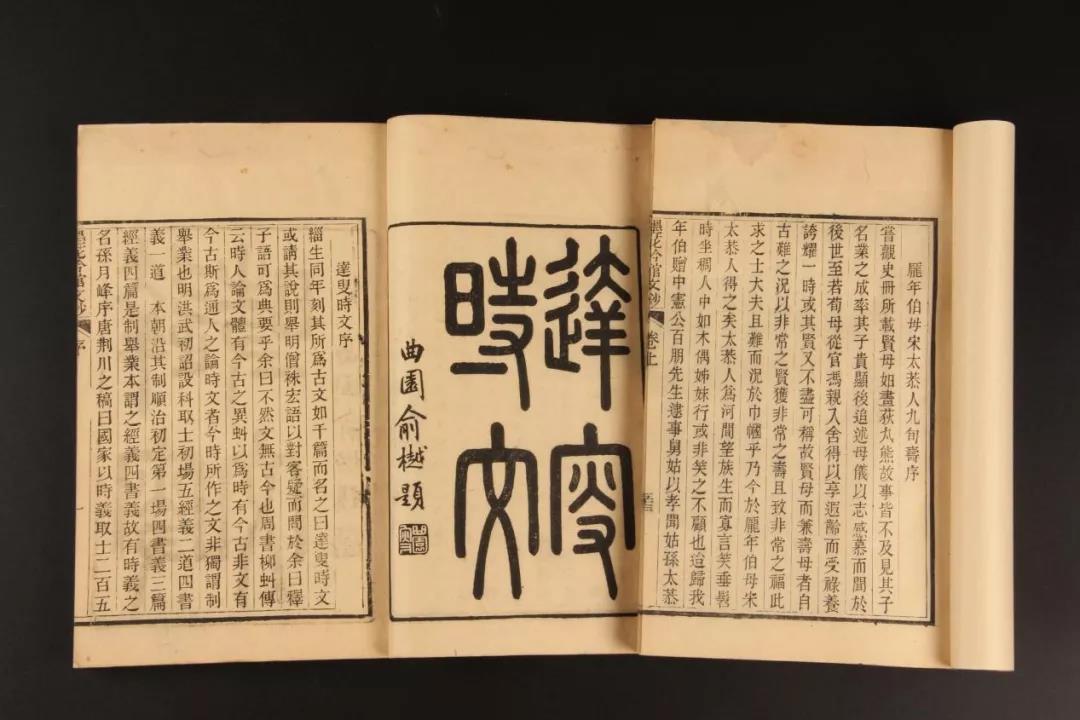 龐年伯母宋太恭人九旬壽序
嘗觀史冊所載賢母如畫荻丸熊故事皆不及見其子
名業之成率其子貴顯後追述母儀以志感慕而聞於
後世至若荀母從官馮親入舍得以享遐齡而受祿養
誇耀一時或其賢又不盡可稱故賢母而兼壽母者自
古難之況以非常之賢獲非常之壽且致非常之福此
求之士大夫且難而況於巾幗乎乃今於龐年伯母宋
太恭人得之矣太恭人爲河間望族生而寡言笑垂髫
時坐稠人中如木偶姊妹行或非笑之不顧也迨歸我
年伯贈中憲公百朋先生逮事舅姑以孝聞姑孫太恭
墨花吟館文鈔 卷上
達叟
時文
曲園俞樾題
達叟時文序
緇生同年刻其所爲古文如干篇而名之曰達叟時文
或請其說則舉明僧祩宏語以對客疑而問於余曰釋
子語可爲典要乎余曰不然文無古今也周書柳虯傳
云時人論文體有今古之異虯以爲時有今古非文有
今古斯爲通人之論時文者今時所作之文非獨謂制
舉業也明洪武初詔設科取士初場五經義二道四書
義一道 本朝沿其制順治初定第一場四書義三篇
經義四篇是制舉業本謂之經義四書義故有時義之
名孫月峰序唐荆川之稿曰國家以時義取士二百五
墨花吟館文鈔 序 一